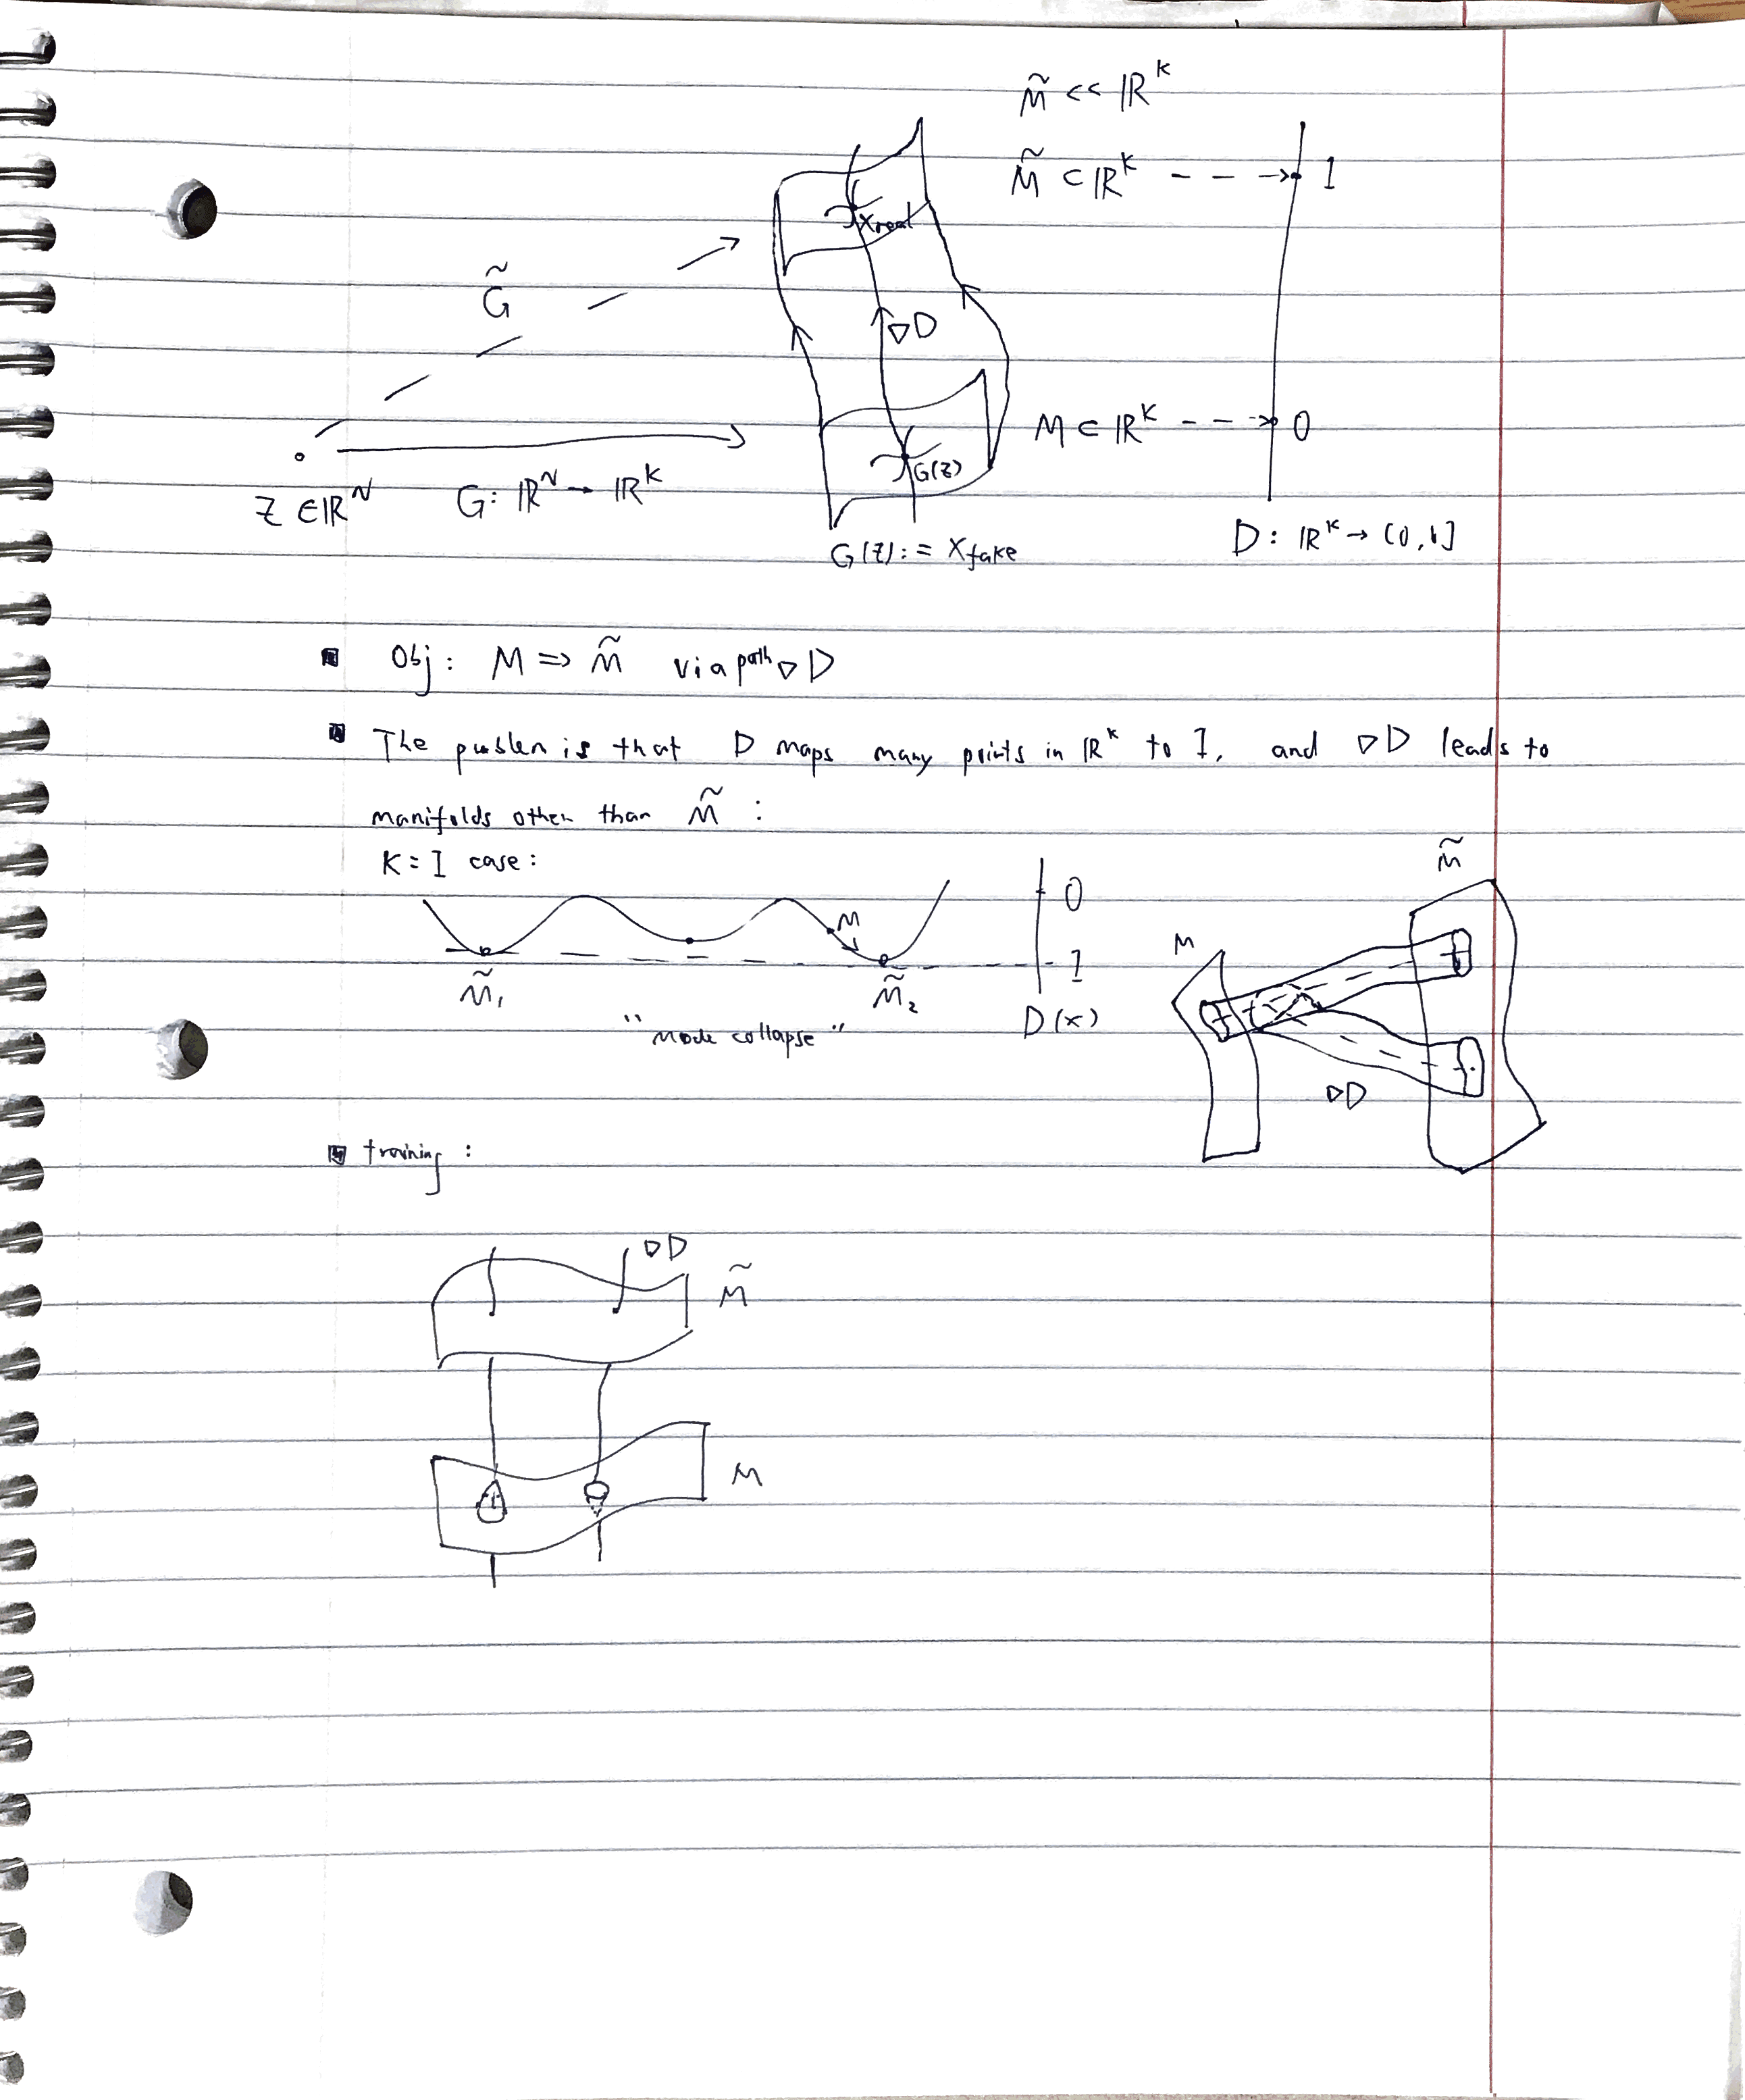 M̃ << ℝᴷ
M̃ ⊂ ℝᴷ - - - -> 1
x_real
G̃
∇D
M ∈ ℝᴷ - - -> 0
G(z)
z ∈ ℝᴺ G: ℝᴺ → ℝᴷ
G(z) := x_fake
D: ℝᴷ → (0,1]
Obj: M => M̃ via path ∇D
The problem is that D maps many points in ℝᴷ to 1, and ∇D leads to
manifolds other than M̃ :
K = 1 case:
M̃
0
M
M
1
M̃₁ M̃₂
"mode collapse" D(x)
∇D
training :
∇D
M̃
M